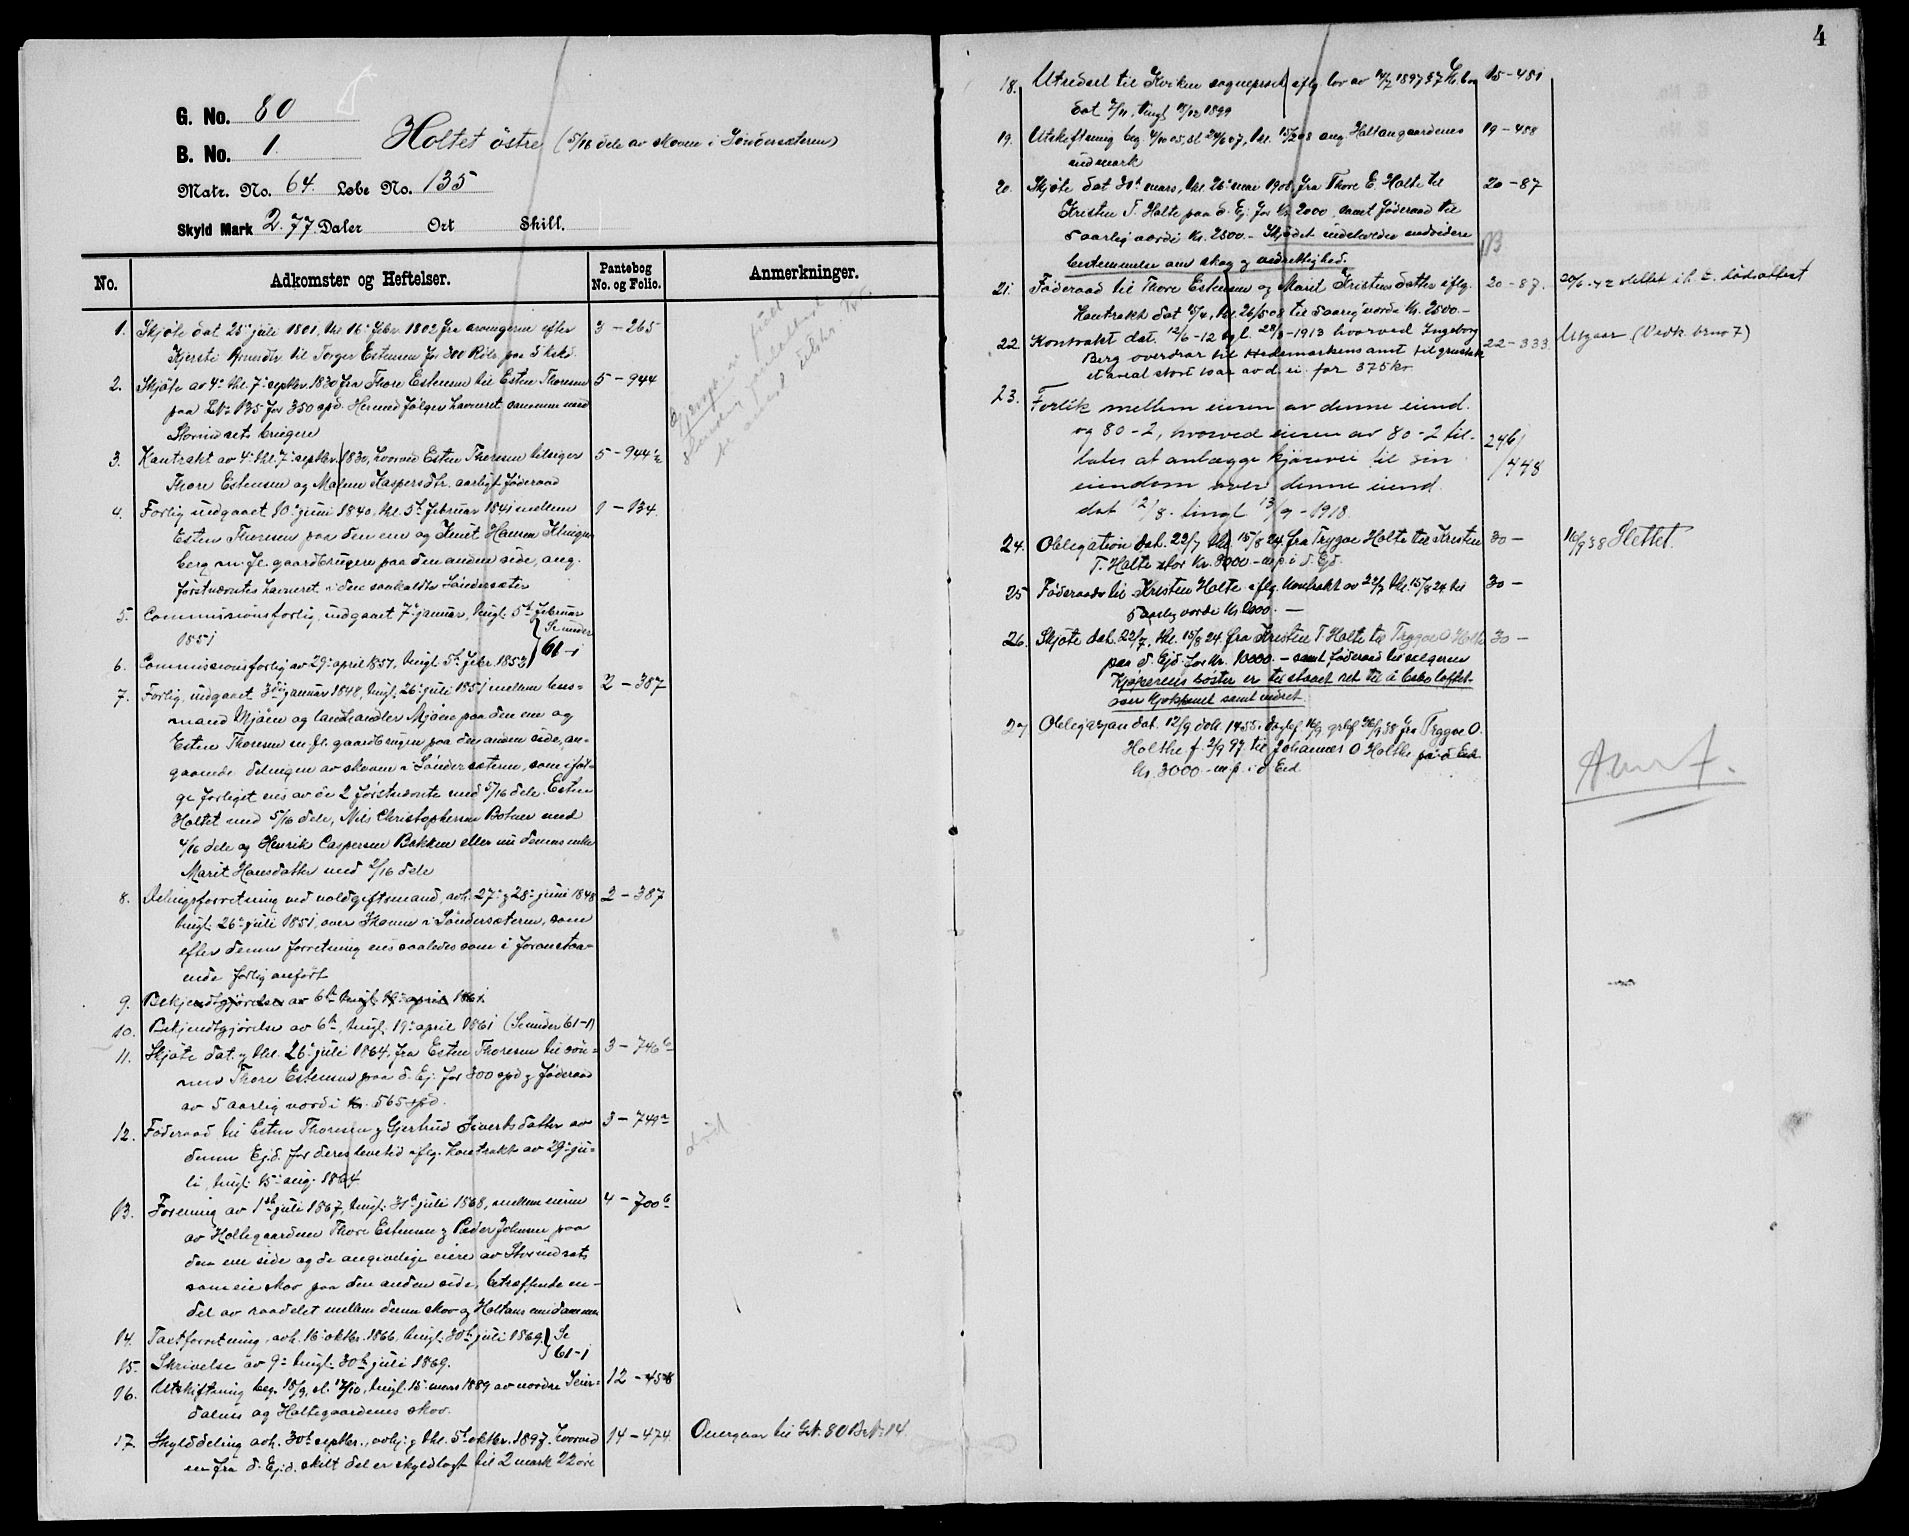 4
G. No. 80
B. No. 1.
Holtet östre (5/16 dele av skoven i Söndersæteren)
Matr. No. 64. Løbe No. 135
Skyld Mark 2.77. Daler Ort Skill.
No. Adkomster og Heftelser. Pantebog No. og Folio. Anmerkninger.
1. Skjøte dat 25. juli 1801, thl 16. febr. 1802 fra arvingerne efter 3 – 265
Kjersti til Torger Estensen for 300 Rdlr paa
2. Skjøte av 4. thl. 7. septbr. 1830 fra Thore Estensen til Esten Thoresen 5 – 944
paa LNr 135 for 350 spd. Hermed følger havneret sammen med
brugere
3. Kontrakt av 4. thl. 7. septbr. 1830, hvorved Esten Thoresen tilsiger 5 – 944
Thore Estensen og Malene Kaspersdtr. aarligt föderaad
4. Forlig indgaaet 10. juni 1840, thl. 5. februar 1841 mellem 1 – 134.
Esten Thoresen paa den ene og Knut Hansen Klingen
berg m. fl. gaardbrugere paa den anden side, ang.
förstnævntes havneret i den saakaldte Söndersæter
5. Commissionsforlig, indgaaet 7. januar, tingl. 5. februar
1851 } Se under
6. Commissionsforlig av 29. april 1851, tingl. 5. febr. 1853 61-1
7. Forlig, indgaaet 3die januar 1848, tingl. 26. juli 1851 mellem lens= 2 – 387
mand Mjöen og landhandler Mjöen paa den ene og
Esten Thoresen m. fl. gaardbrugere paa den anden side, an=
gaaende delingen av skoven i Söndersæteren, som iföl=
ge forliget eies av de 2 förstnævnte med 5/16 dele. Esten
Holtet med 5/16 dele, Nils Christophersen Botnen med
4/16 dele og Henrik Caspersen Bakken eller nu dennes enke
Marit Hansdatter med 2/16 dele
8. Delingsforretning ved voldgiftsmænd, avh. 27. og 28. juni 1848 2 – 387
tingl. 26. juli 1851, over skoven i Söndersæteren, som
efter denne forretning eies saaledes som i foranstaa=
ende forlig anfört
9. Bekjendtgjörelse av 6te tingl. 19. april 1861.
10. Bekjendtgjörelse av 6te, tingl. 19. april 1861 (Se under 61-1)
11. Skjøte dat. og thl. 26. juli 1864, fra Esten Thoresen til sön= 3 – 746b
nen Thore Estensen paa d. Ej. for 300 spd og föderaad
av 5 aarlig værdi 565 spd.
12. Föderaad til Esten Thoresen og Gjertrud Sivertsdatter av 3 – 749a
denne Ejd. for deres levetid iflg. kontrakt av 29. ju=
li, tingl. 15. aug. 1864
död
13. Forening av 1ste juli 1867, tingl. 31. juli 1868, mellem eierne 4 – 700b
av Holtegaardene Thore Estensen og Peder Johnsen paa
den ene side og de angivelige eiere av
sameie skov paa den anden side, betræffende en=
del av raadelet mellem denne skov og Holtans eiendommen
14. Taxtforretning, avh. 16. oktbr. 1866, tingl. 30. juli 1869. } Se
15. Skrivelse av 9. tingl. 30. juli 1869. 61-1
16. Utskiftning beg. 18/9, sl. 17/10, tingl. 15. mars 1889 av nordre Seier= 12 – 458
dalens og Holtegaardenes skov.
17. Skylddeling avh. 30. septbr., avhj. og thl. 5. oktbr. 1897, hvorved 14 – 474. Overgaar til GNr. 80 BrNr. 14.
en fra d. Ejd. skilt del er skyldlagt til 2 mark 22 öre
18. Utredsel til Kvikne sogneprest iflg. lov av 14/7 1897 § 7 15 – 481
dat 7/11, tingl 1899
19. Utskiftning beg. 4/10 05, sl 24/6 07, thl. 15/2 08 ang. Holtangaardenes 19 – 488
indmark
20. Skjøte dat 30. mars, thl. 26. mai 1908 fra Thore E. Holte til 20 – 87
Kristen T. Holte paa d. Ej. for Kr. 2000, samt föderaad til
5 aarlig værdi Kr. 2500. – Skjödet indeholder endvidere
bestemmelse om skog og vedrettighed.
21. Föderaad til Thore Estensen og Marit Kristensdatter iflg. 20 – 87. 20/6 – 42 slettet i h. t. dödsattest
Kontrakt dat 4, thl. 26/5 08 til 5 aarig værde Kr. 2500 –
22. Kontrakt dat. 12/6 – 12 tgl. 28/3 – 1913 hvorved Ingeborg 22 – 333. Utgaar (Vedk. br no 7)
Berg overdrar til Hedemarkens amt til grustak
et areal stort av d. ei. for 375 kr
23. Forlik mellem eieren av denne eiend.
og 80 – 2, hvorved eieren av 80 – 2 til- 246/
lates at anlægge kjörevei til sin 448
eiendom over denne eiend.
dat 12/8. tingl. 13/9 – 1918.
24. Obligation dat. 22/7 thl. 15/8 24 fra Trygve Holte til Kristen 30 – 16/9 38 Slettet.
T. Holte stor Kr. 8000 – m. p. i d. Ejd.
25 Föderaad til Kristen Holte iflg. kontrakt av 22/7 thl. 15/8 24 til 30 –
5 aarlig værde Kr. 2000. –
26. Skjøte dat. 22/7, thl. 15/8 24 fra Kristen T Holte til Trygve O. Holte 30 –
paa d. Ejd. for Kr. 10000. – samt föderaad til selgeren
Kjöperens söster er tilstaaet ret til å bebo loftet
over kjökkenet samt vedret.
27 Obligasjon dat. 12/9 dok. 1455. dagbf 16/9 grbf 26/9 38 fra Trygve O.
Holthe f. 2/9 97 til Johannes O Holthe på d Eied
kr. 3000 – m. p. i d Eied